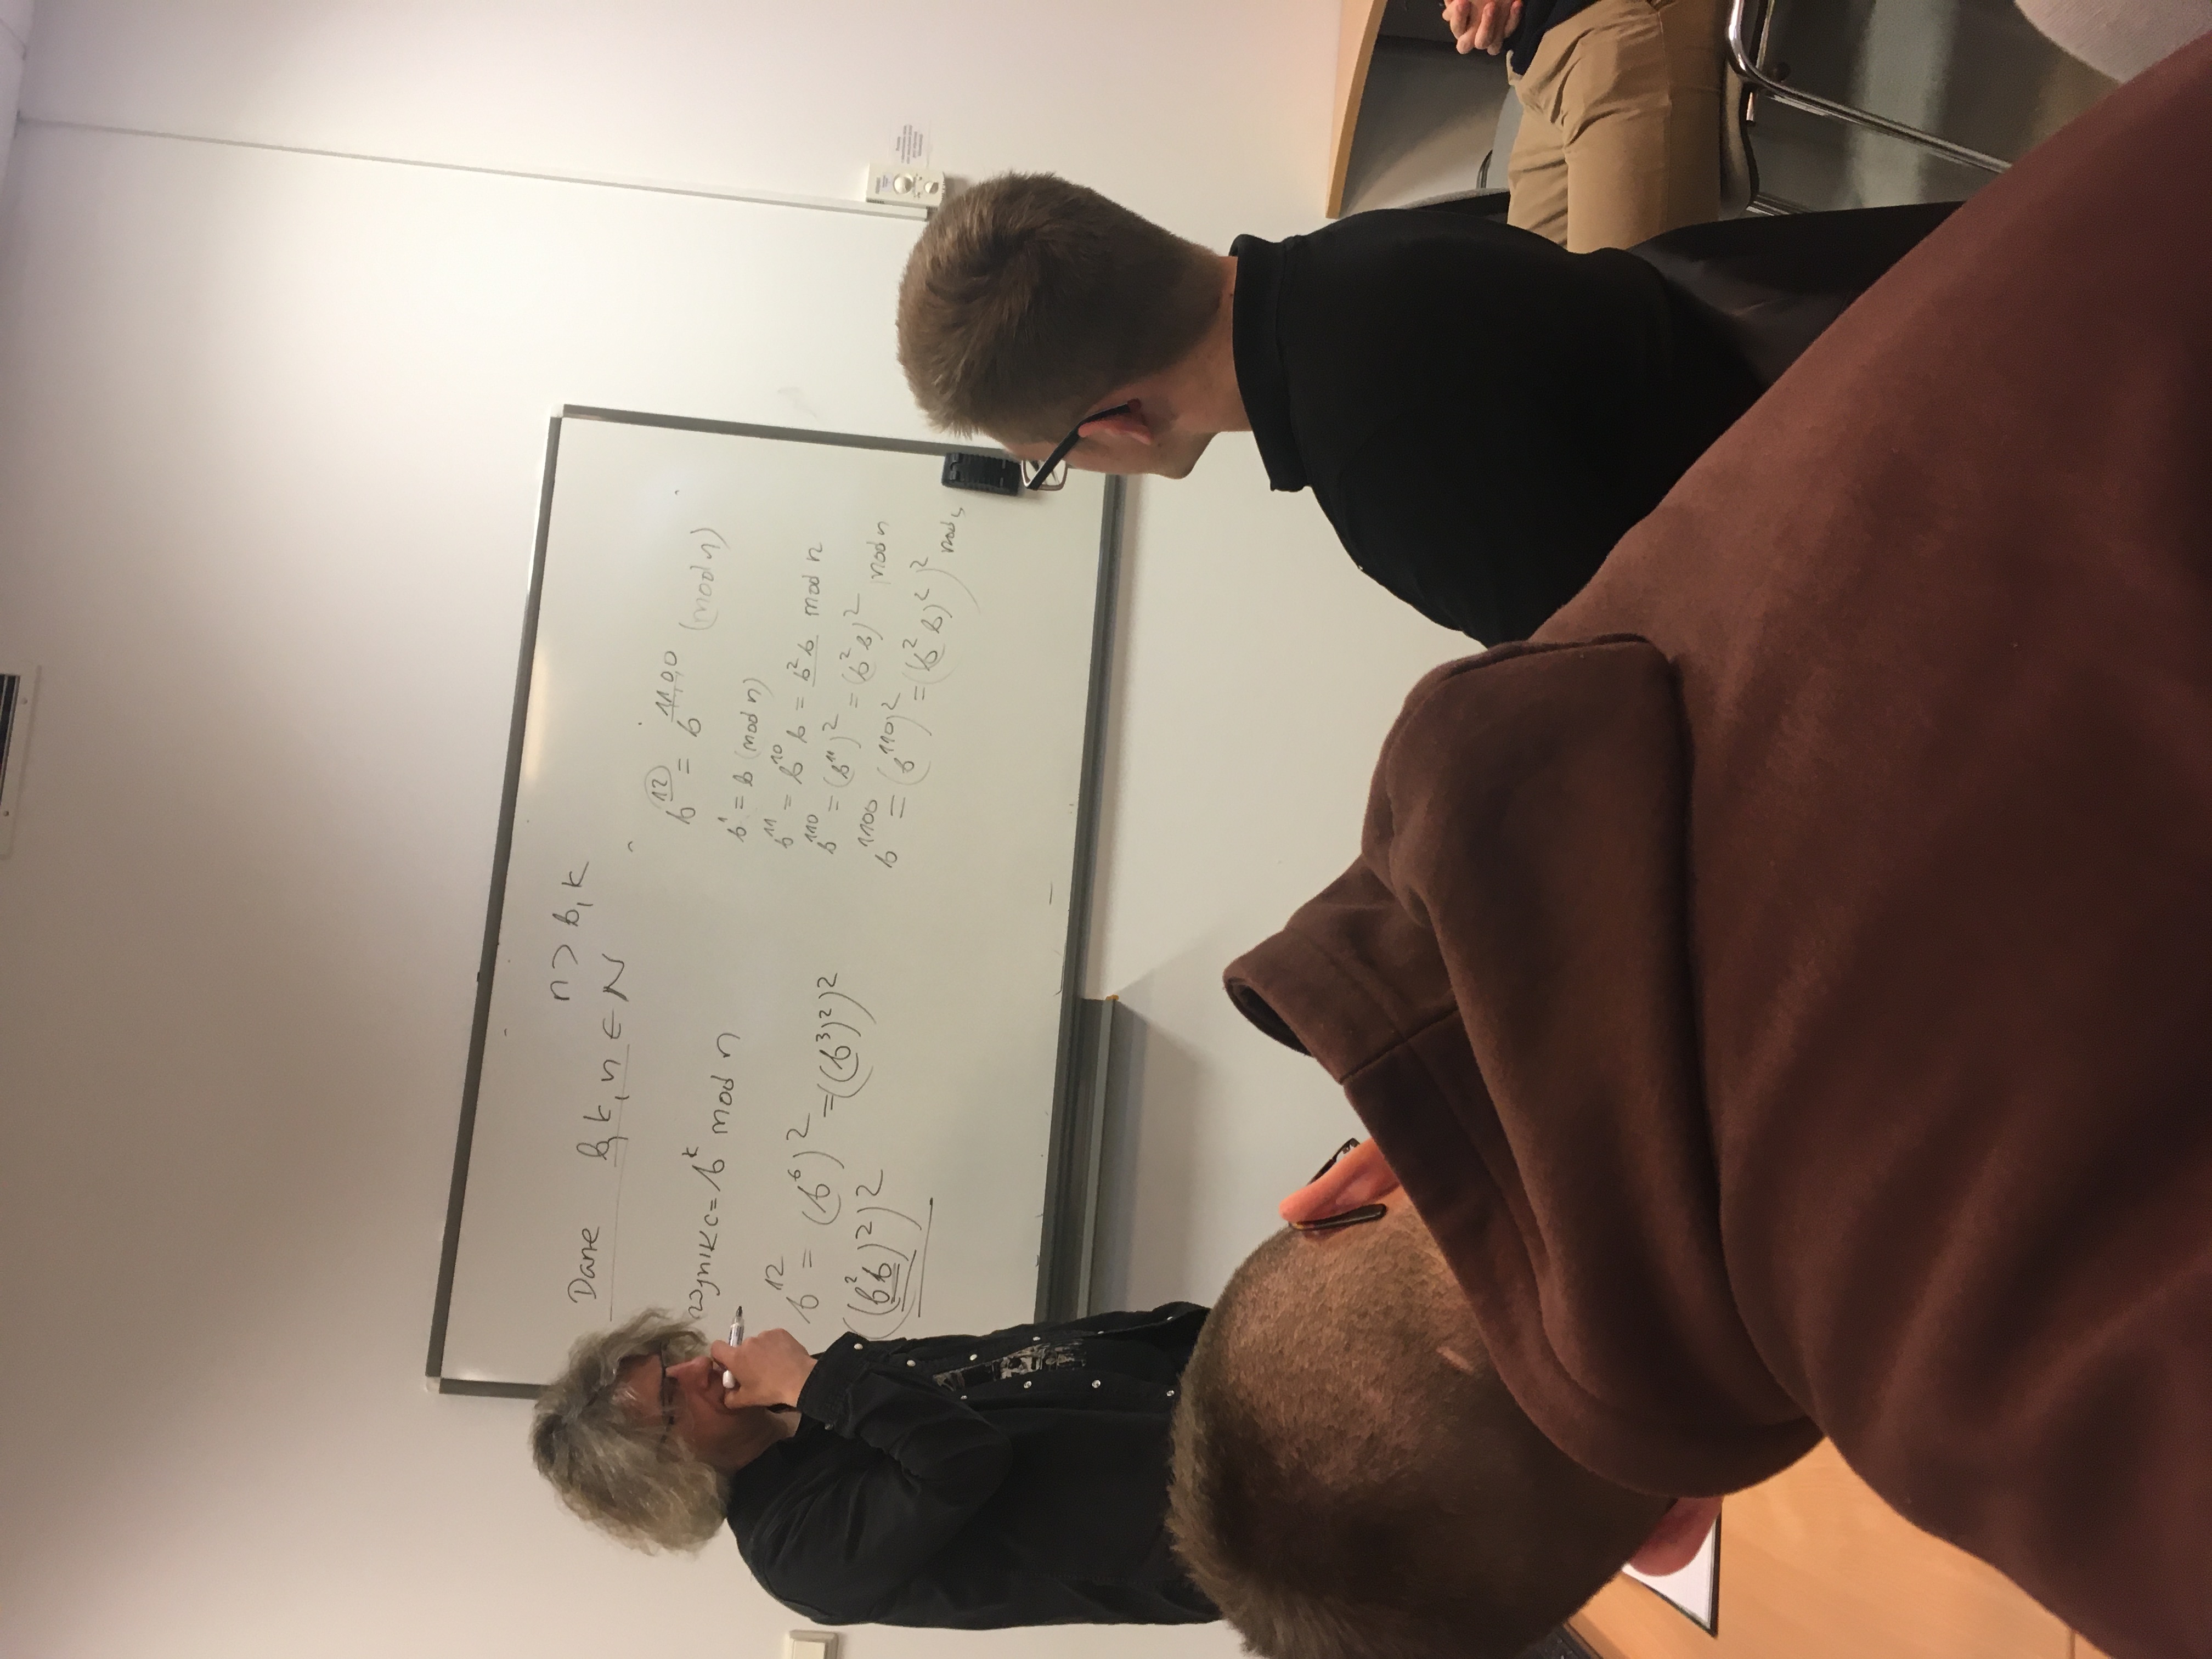 n > b, k
Dane b, k, n ∈ N
wynik c = b^k mod n
b^12 = (b^6)^2 = ((b^3)^2)^2
((b^2 b)^2)^2
b^12 = b^1100 (mod n)
b^1 = b (mod n)
b^11 = b^10 b = b^2 b mod n
b^110 = (b^11)^2 = (b^2 b)^2 mod n
b^1100 = (b^110)^2 = (b^2 b)^2)^2 mod n